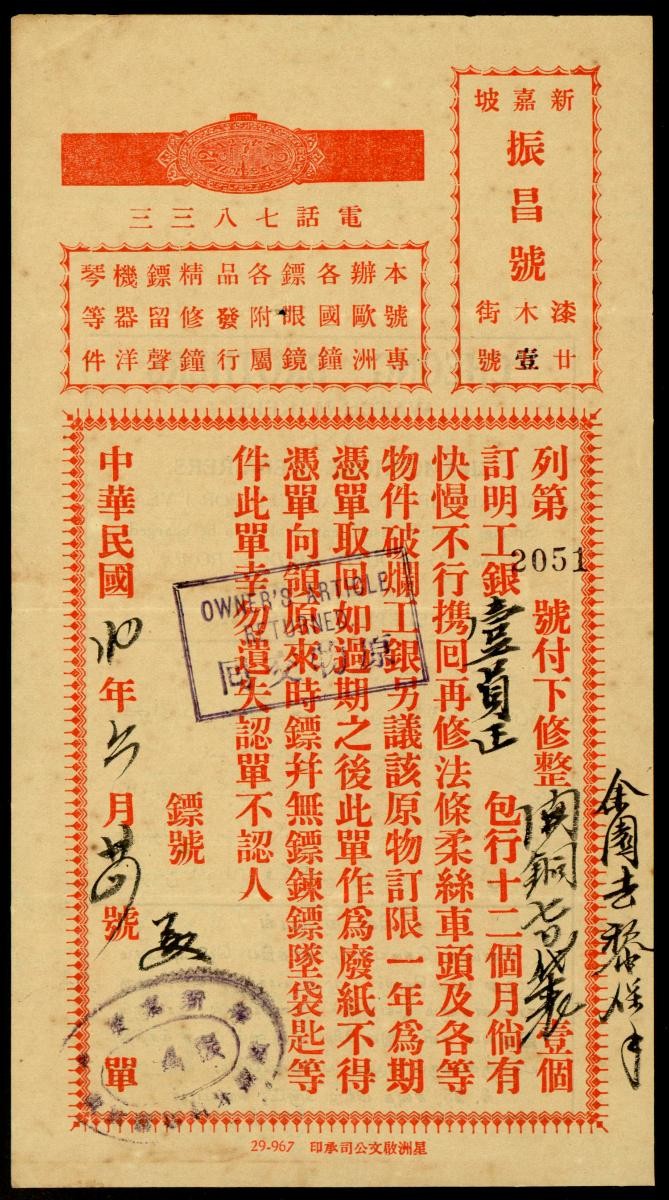 新嘉坡
振昌號
漆木街
廿壹號
電話七八三三
本號專
辦歐洲
各國鐘
鏢眼鏡
各附屬
品發行
精修鐘
鏢留聲
機器洋
琴等件
列第2051號付下修整 銅 壹個
訂明工銀壹員正 包行十二個月倘有
快慢不行携囘再修法條柔絲車頭及各等
物件破爛工銀另議該原物訂限一年爲期
憑單取囘如過期之後此單作爲廢紙不得
憑單向領原來時鏢幷無鏢鍊鏢墜袋匙等
件此單幸勿遺失認單不認人
鏢號
中華民國 年六月 號 單
OWNER'S ARTICLE
RETURNED
原物交回
星洲啟文公司承印 29-967